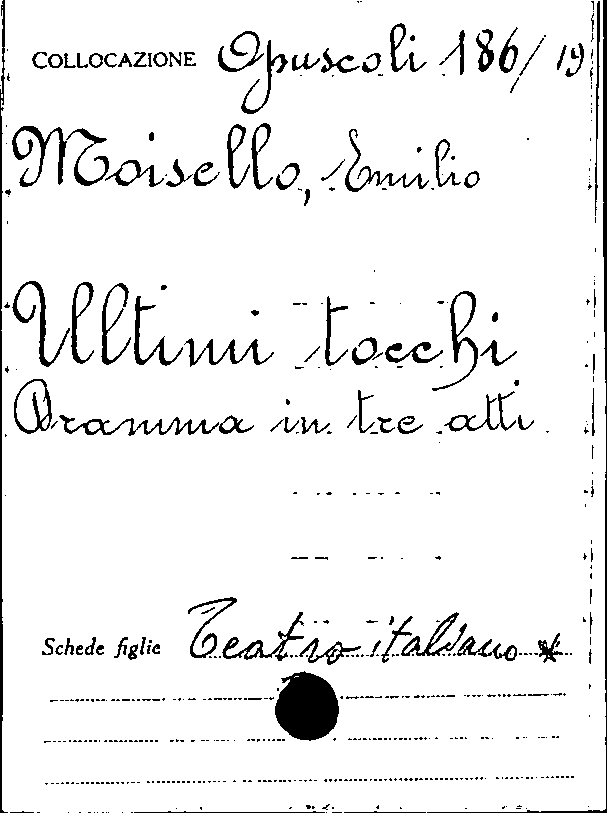 COLLOCAZIONE Opuscoli 186/19
Moisello, Emilio
Ultimi tocchi
Dramma in tre atti
Schede figlie Teatro italiano *